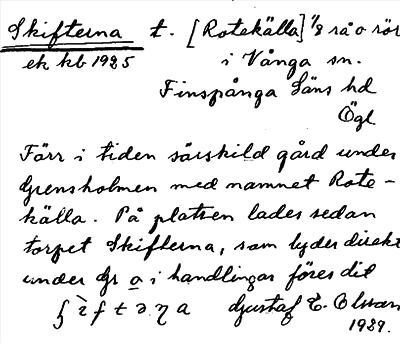 Skifterna t. [Rotekälla] 1/8 rå o rör
ek kb 1925 i Vånga sn.
Finspånga läns hd
Ögl
Förr i tiden särskild gård under
Grensholmen med namnet Rote-
källa. På platsen lades sedan
torpet Skifterna, som lyder direkt
under Gr o i handlingar föres dit
Gustaf E. Olsson
1929.